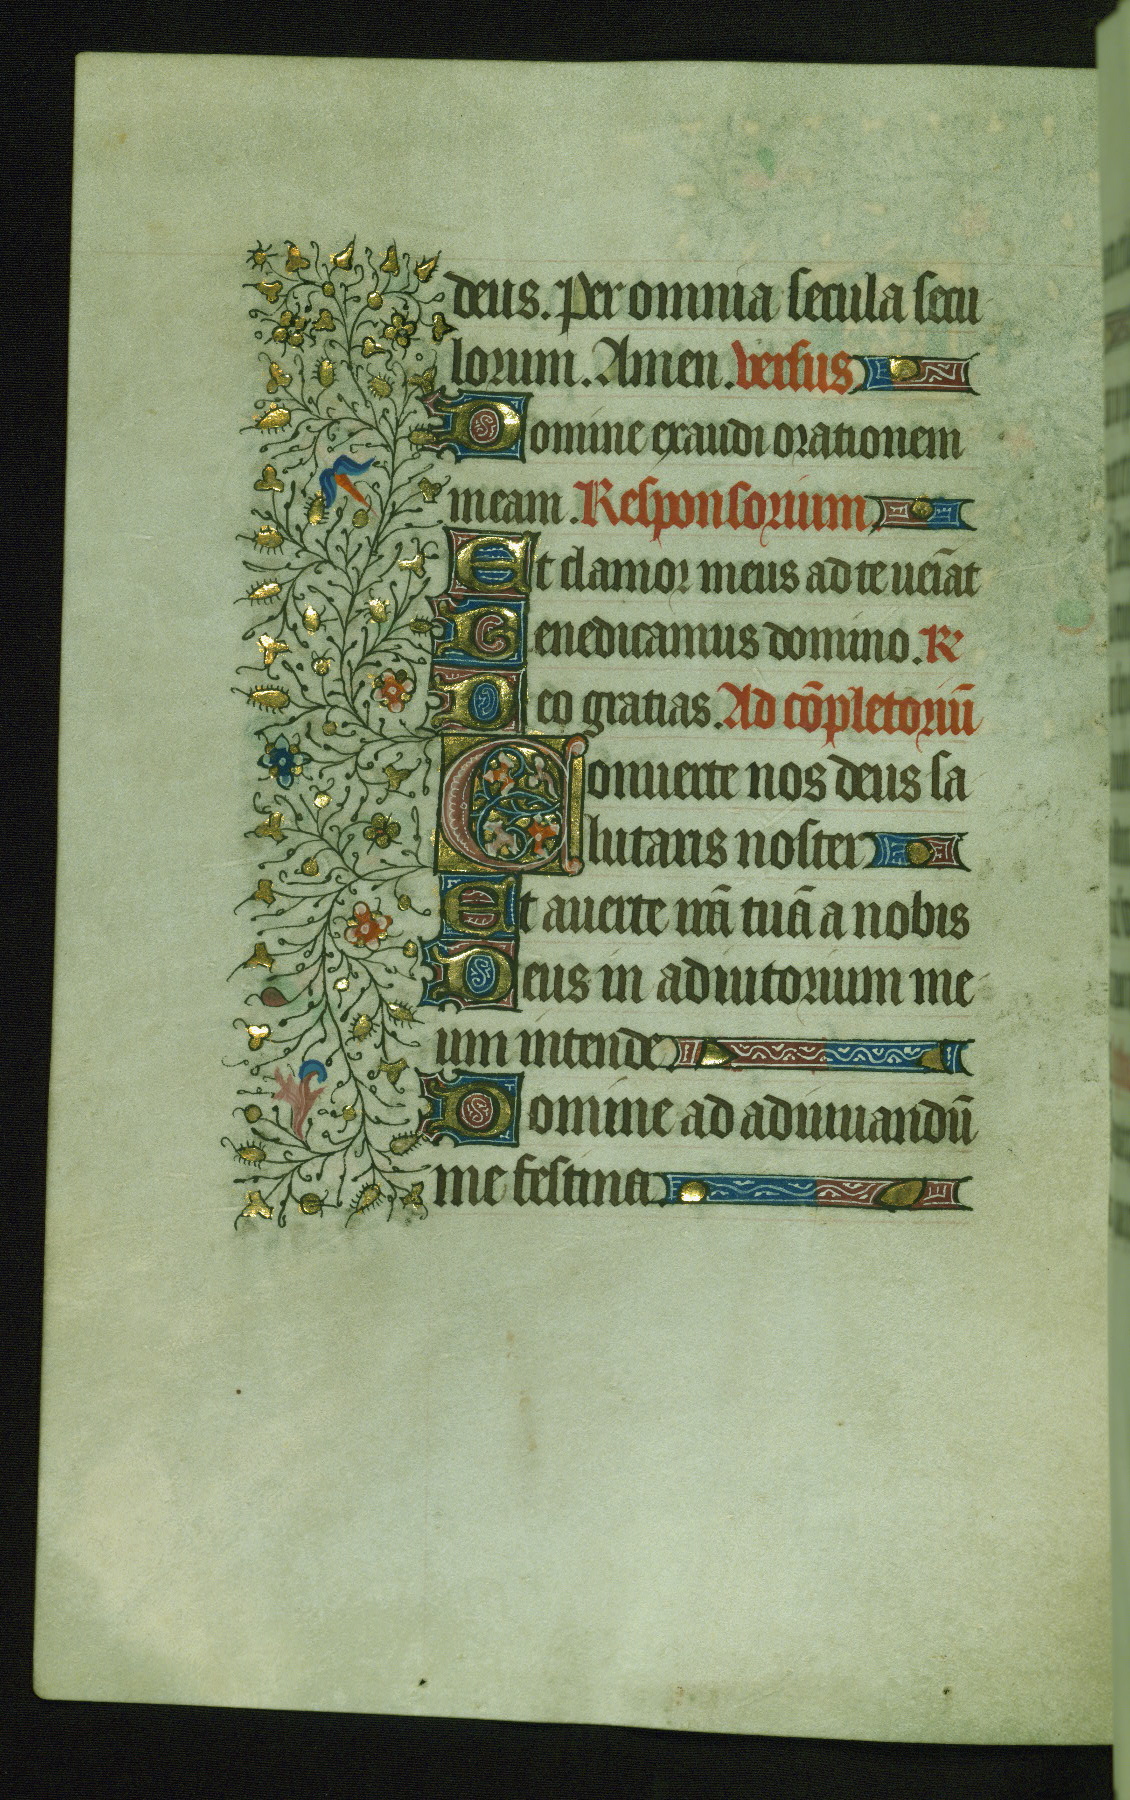 deus. Per omnia secula secu
lorum. Amen. versus
Domine exaudi orationem
meam. Responsorium
Et clamor meus ad te veniat
Benedicamus domino. R
Deo gratias. Ad cōpletoriū
Conuerte nos deus sa
lutaris noster
Et auerte irā tuā a nobis
Deus in adiutorium me
um intende
Domine ad adiuuandū
me festina